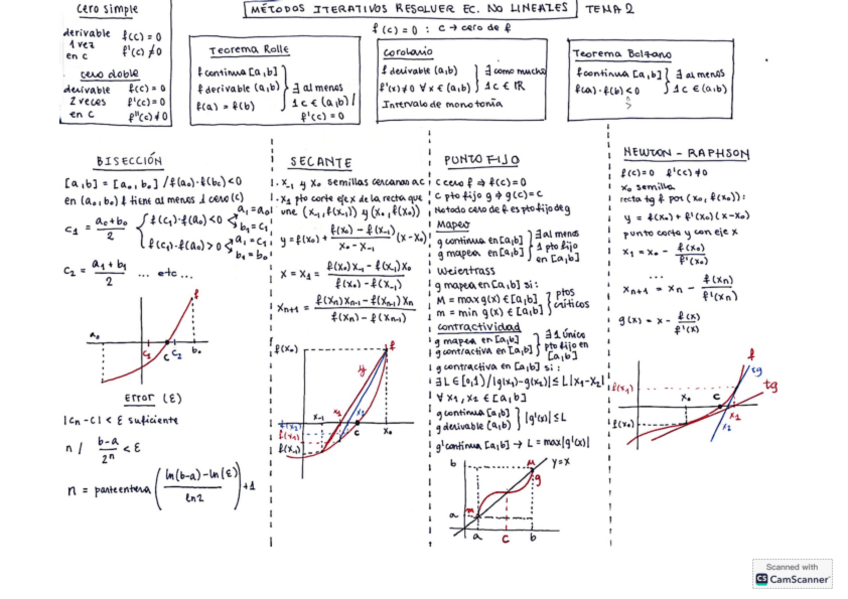 MÉTODOS ITERATIVOS RESOLVER EC. NO LINEALES TEMA 2
f(c)=0 : c → cero de f
cero simple
derivable f(c)=0
1 vez
en c f'(c)≠0
cero doble
derivable f(c)=0
2 veces f'(c)=0
en c f''(c)≠0
Teorema Rolle
f continua [a,b]
f derivable (a,b)
f(a) = f(b)
∃ al menos
1 c ∈ (a,b) /
f'(c) = 0
Corolario
f derivable (a,b)
f'(x)≠0 ∀x ∈ (a,b)
∃ como mucho
1 c ∈ ℝ
Intervalo de monotonía
Teorema Bolzano
f continua [a,b]
f(a)·f(b)<0
∃ al menos
1 c ∈ (a,b)
BISECCIÓN
[a,b] = [a₀,b₀] / f(a₀)·f(b₀)<0
en (a₀,b₀) f tiene al menos 1 cero (c)
c₁ = (a₀+b₀)/2
f(c₁)·f(a₀)<0 → a₁=a₀ b₁=c₁
f(c₁)·f(a₀)>0 → a₁=c₁ b₁=b₀
c₂ = (a₁+b₁)/2 ... etc ...
f
a₀ c₁ c c₂ b₀
ERROR (ε)
|cn-c| < ε suficiente
n / (b-a)/2ⁿ < ε
n = parte entera ((ln(b-a)-ln(ε))/ln2) +1
SECANTE
1. x₋₁ y x₀ semillas cercanas a c
1. x₁ pto corte eje x de la recta que
une (x₋₁, f(x₋₁)) y (x₀, f(x₀))
y = f(x₀) + (f(x₀) - f(x₋₁))/(x₀ - x₋₁) (x-x₀)
x = x₁ = (f(x₀)x₋₁ - f(x₋₁)x₀)/(f(x₀) - f(x₋₁))
xn+1 = (f(xn)xn-1 - f(xn-1)xn)/(f(xn) - f(xn-1))
f(x₀) f
y
x₋₁ x₁ x₂
f(x₂)
f(x₁) c x₀
f(x₋₁)
PUNTO FIJO
c cero f ⇒ f(c)=0
c pto fijo g ⇒ g(c)=c
No todo cero de f es pto fijo de g
Mapeo
g continua en [a,b]
g mapea en [a,b]
∃ al menos
1 pto fijo
en [a,b]
Weierstrass
g mapea en [a,b] si:
M = max g(x) ∈ [a,b]
m = min g(x) ∈ [a,b]
ptos
críticos
contractividad
g mapea en [a,b]
g contractiva en [a,b]
∃ 1 único
pto fijo en
[a,b]
g contractiva en [a,b] si:
∃ L ∈ [0,1) / |g(x₁)-g(x₂)| ≤ L|x₁-x₂|
∀ x₁, x₂ ∈ [a,b]
g continua [a,b]
g derivable (a,b)
|g'(x)| ≤ L
g' continua [a,b] → L = max|g'(x)|
b M y=x
g
a m
a c b
NEWTON - RAPHSON
f(c)=0 f'(c)≠0
x₀ semilla
recta tg f por (x₀, f(x₀)):
y = f(x₀) + f'(x₀)(x-x₀)
punto corta y con eje x
x₁ = x₀ - f(x₀)/f'(x₀)
...
xn+1 = xn - f(xn)/f'(xn)
g(x) = x - f(x)/f'(x)
f
tg
tg
f(x₁)
x₀ c x₁
f(x₀) x₂
Scanned with
CS CamScanner